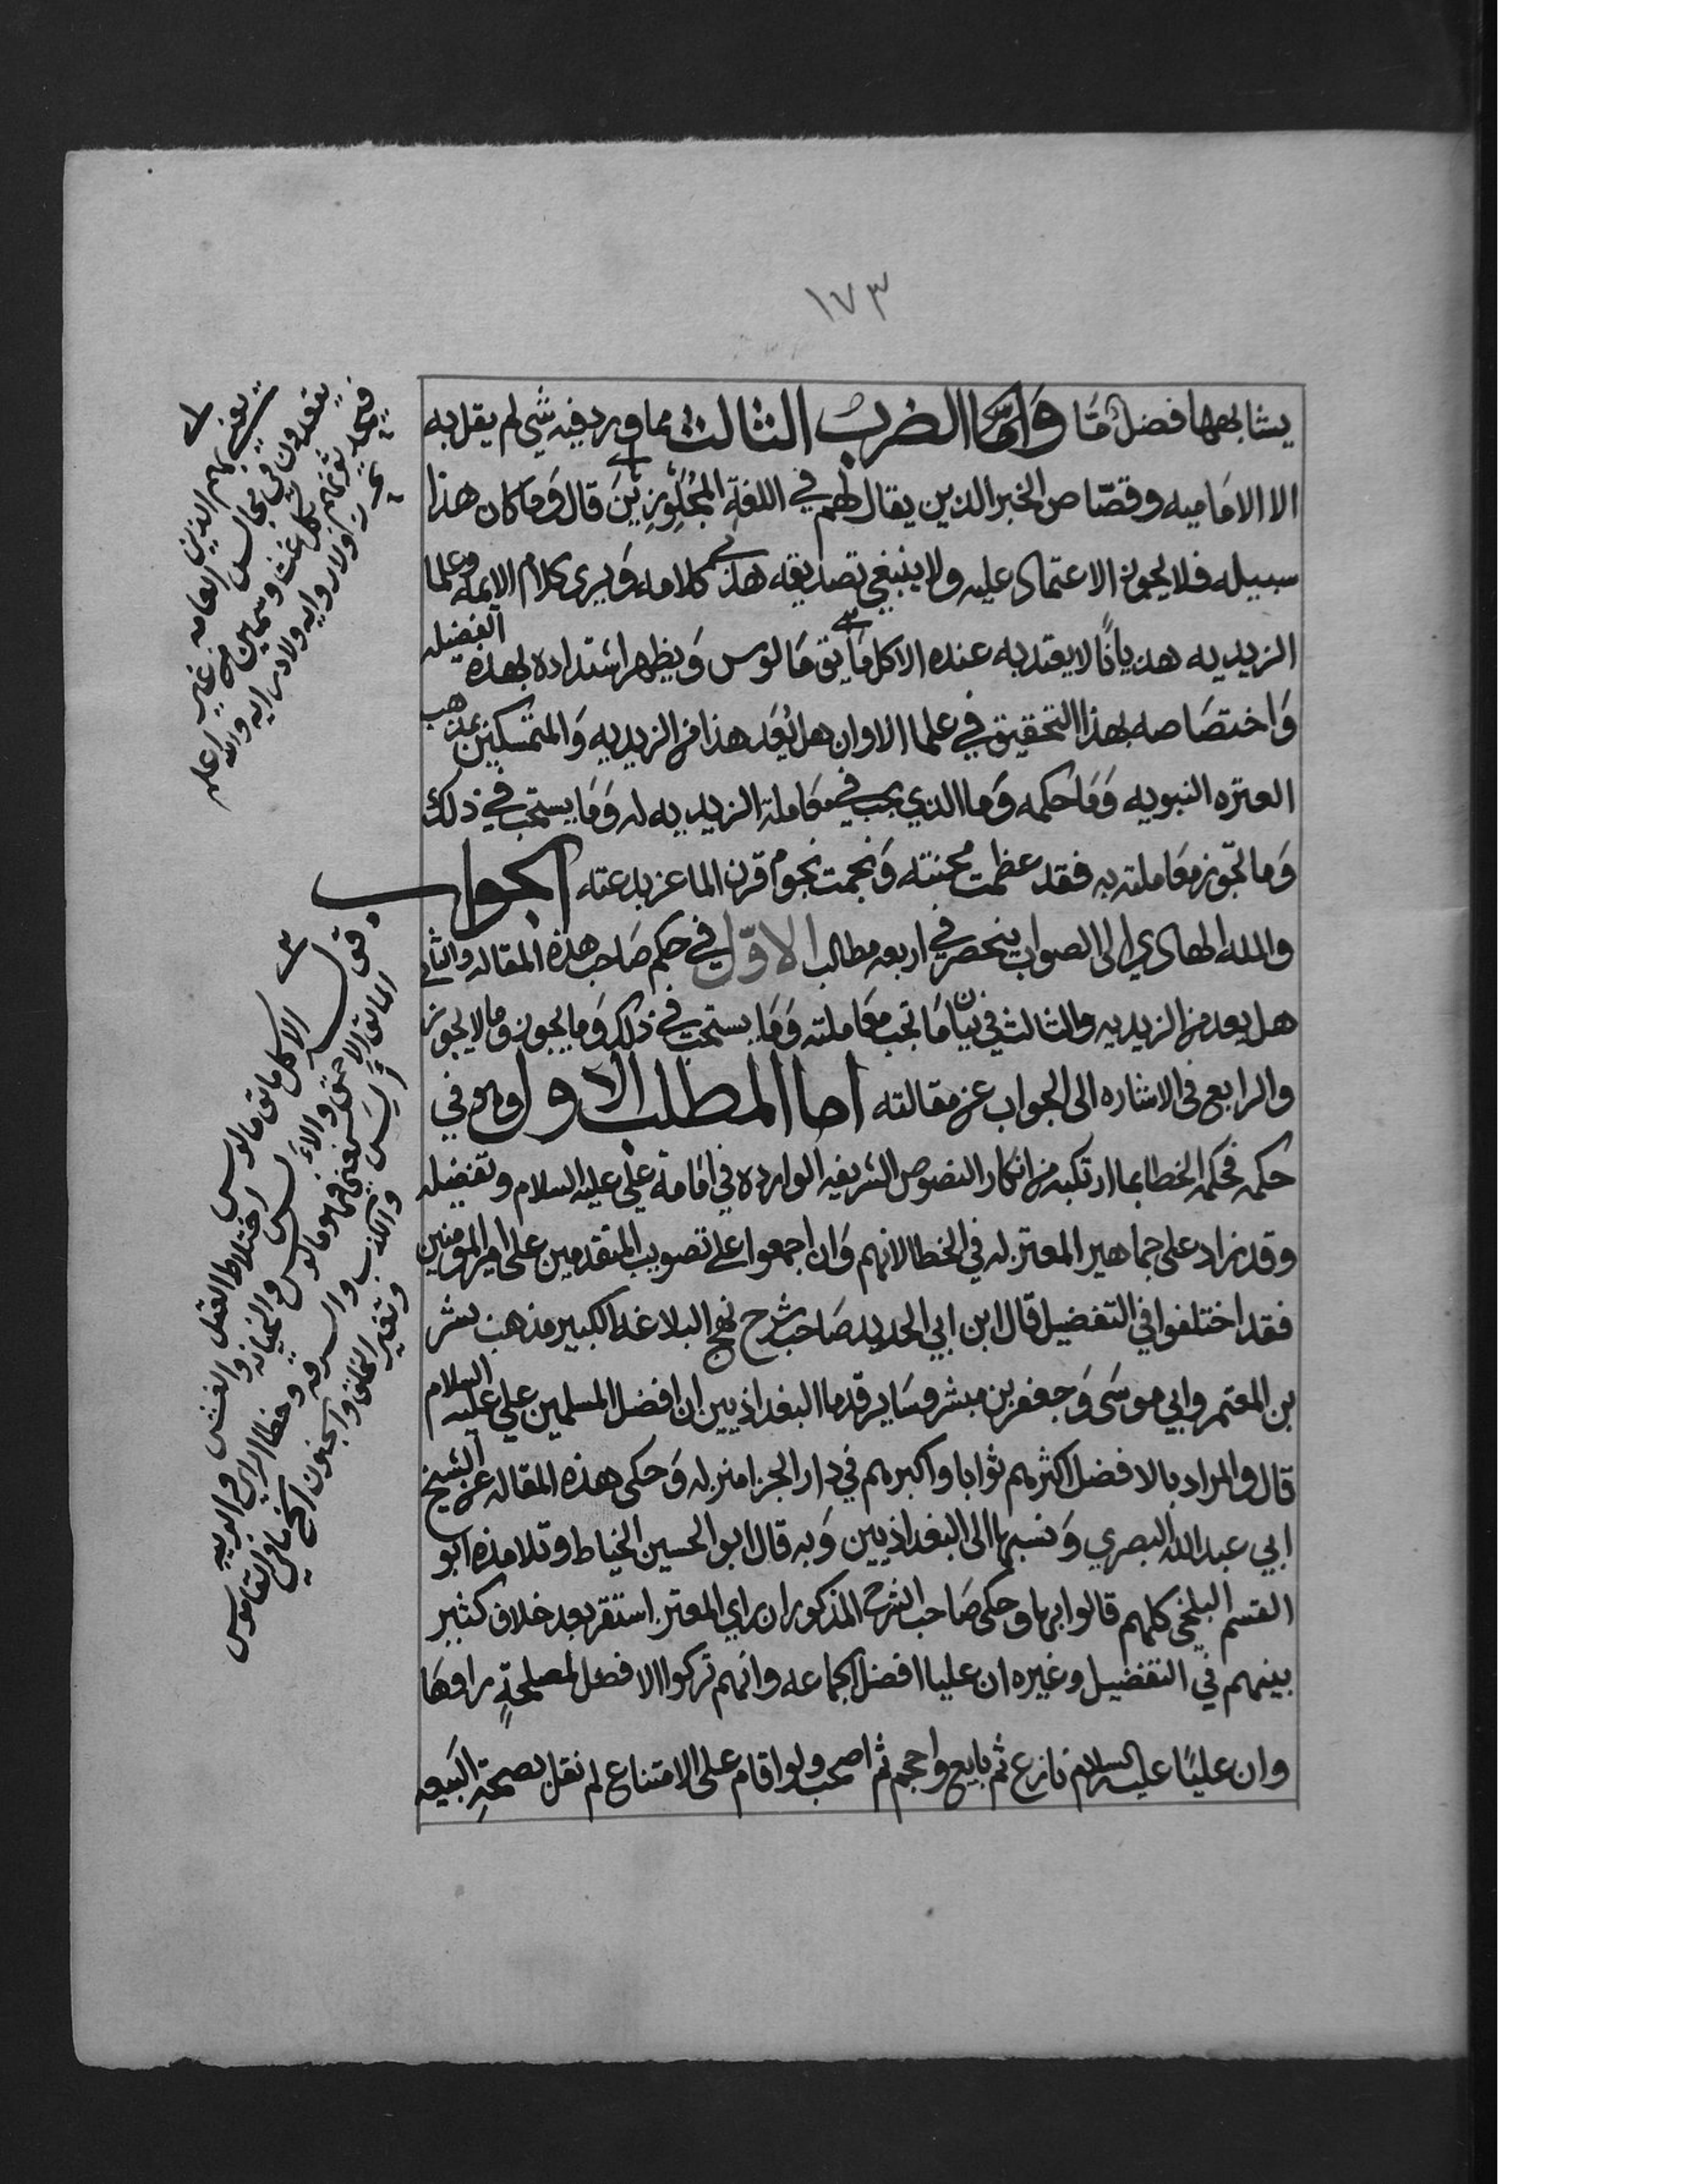 ١٧٣
يشابهها فضل ما وَامَّا الضرب الثالث مما ورد فيه شي لم يقل به
الا الاماميه وقصّاص الخبر الذين يقال لهم في اللغة المُجَلْوِزِيْنَ قال وَما كان هذا
سبيله فلا يجوز الاعتماد عليه ولا ينبغي تصديقه هذا كلامه وَيرى كلام الايمه وعلما
الزيديه هذيانًا لا يعتد به عنده الا كل مايق مَالوس وَيظهر اشتداده بهذه الفضيله
وَاختصاصه بهذا التحقيق في علما الاوان هل يُعَد هذا من الزيديه وَالمتمسكين بمذهب
العتره النبويه وَمَا حكمه وَما الذي يجب في معَاملة الزيديه له وَمَا يستحب في ذلك
وَما تجوز معَاملته به فقد عظمت محنته وَنجمت نجوم قرن الماعز بدعته الجواب
والله الهادي الى الصواب ينحصر في اربعه مطالب الاوّل في حكم صَاحب هذه المقاله والثاني
هل يعد من الزيديه والثالث في بيان مَا تجب معَاملته وَمَا يستحب في ذلك وَما يجوز وما لا يجوز
والرابع في الاشاره الى الجواب عن مقالته اما المطلب الاول وهو في
حكمه فحكمه الخطا بما ارتكبه من انكار النصوص الشريفه الوارده في امَامة علي عليه السلام وتفضيله
وقد زاد على جماهير المعتزله في الخطا لانهم وَان اجمعوا على تصويب المتقدمين على امير المومنين
فقد اختلفوا في التفضيل قال ابن ابي الحديد صَاحب شرح نهج البلاغه الكبير مذهب بشر
بن المعتمر وابي موسَى وَجعفر بن مبشر وسَاير قدما البغداذيين ان افضل المسلمين علي عليه السلام
قال والمراد بالافضل اكثرهم ثوابا واكبرهم في دار الجزا منزله وَحكى هذه المقاله عن الشيخ
ابي عبد الله البصري وَنسبها الى البغداذيين وَبه قال ابو الحسين الخياط وتلامذه ابو
القسم البلخي كلهم قالوا بها وحكى صَاحب الشرح المذكور ان راي المعتزله استقر بعد خلاف كثير
بينهم في التفضيل وغيره ان عليا افضل الجماعه وانهم تركوا الافضل لمصلحةٍ راوهَا
وان عليًا عليه السلام نازع ثم بايع واحجم ثم اصحب ولو اقام على الامتناع لم نقل بصحةِ البَيعه
بهم الذين
يقعدون في مجالس العامه
كل غث وسمين من غير
ولا روايه ولا درايه والله اعلم
الا كل مايق مالوس
المايق الاحمق
اختلاط العقل
والخيانه والغش
والكذب والسرقه وخطا الراي والريبه
وتغير الخلق والجنون
القاموس